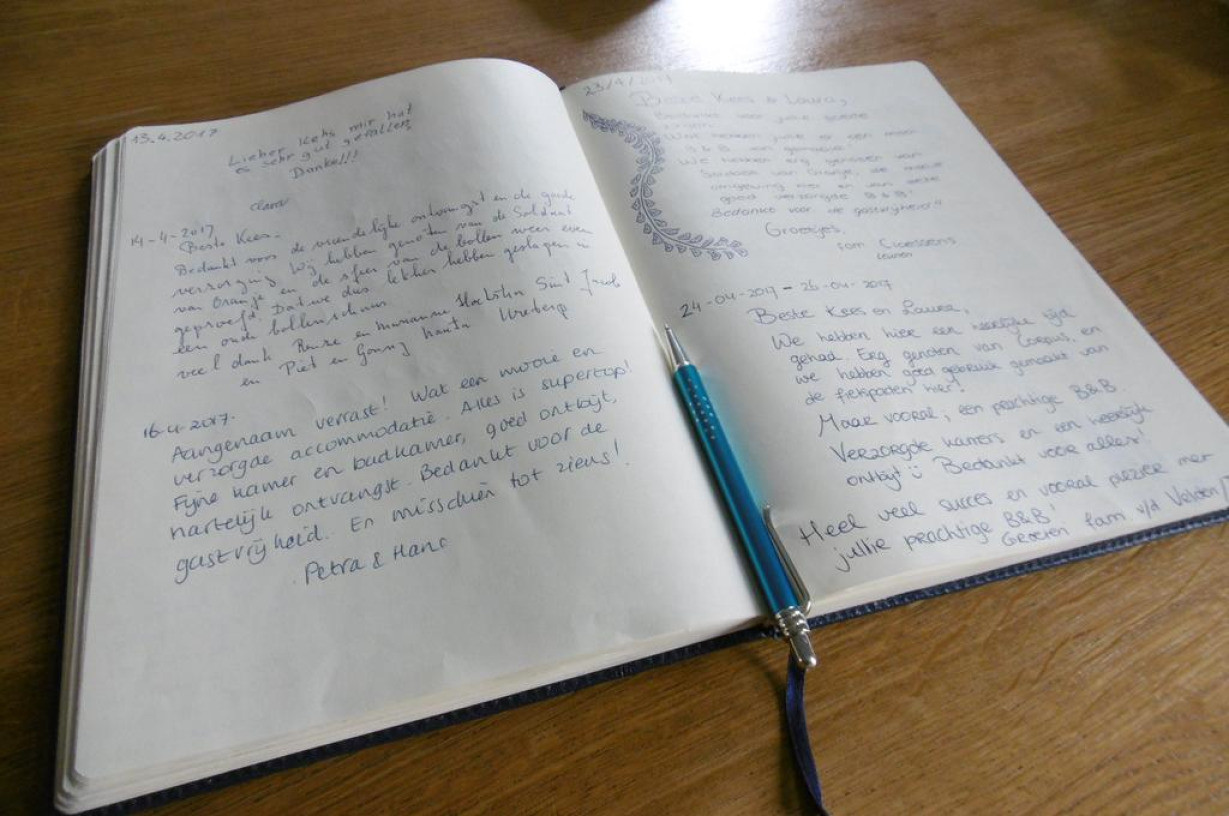 13.4.2017
Lieber Kehs mir hat
es sehr gut gefallen
Danke!!!
Clara
14-4-2017
Beste Kees.
Bedankt voor de vriendelijke ontvangst en de goede
verzorging. Wij hebben genoten van de Soldaat
van Oranje en de sfeer van de bollen weer even
geproefd. Dat we dus lekker hebben geslapen in
een oude bollenschuur
veel dank Rense en Marianne Sint Jacob
en Piet en
16-4-2017.
Aangenaam verrast! Wat een mooie en
verzorgde accommodatie. Alles is supertop!
Fijne kamer en badkamer, goed ontbijt,
hartelijk ontvangst. Bedankt voor de
gastvrijheid. En misschien tot ziens!
Petra & Hans
23/4/2017
Beste Kees & Laura,
Bedankt voor jullie goede
zorgen.
Wat hebben jullie er een mooi
B&B van gemaakt!
We hebben erg genoten van
Soldaat van Oranje, de mooie
omgeving hier en van jullie
goed verzorgde B&B!
Bedankt voor de gastvrijheid!!
Groetjes,
fam
24-04-2017 - 26-04-2017
Beste Kees en Laura,
We hebben hier een heerlijke tijd
gehad. Erg genoten van Corpus, en
we hebben goed gebruik gemaakt van
de fietspaden hier!
Maar vooral; een prachtige B&B.
Verzorgde kamers en een heerlijk
ontbijt Bedankt voor alles!
Heel veel succes en vooral plezier met
jullie prachtige B&B!
Groeten fam v/d Velden/